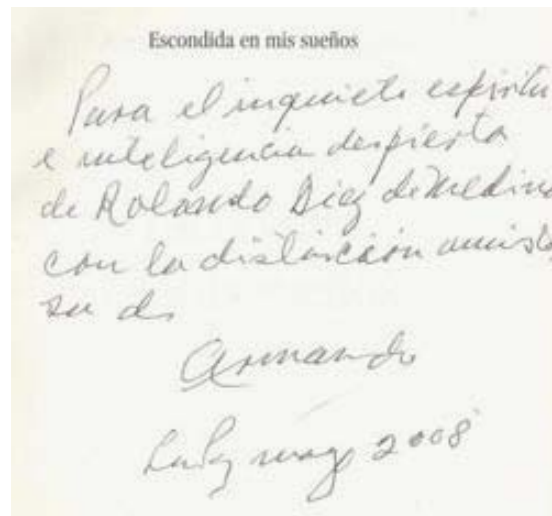 Escondida en mis sueños
Para el inquieto espíritu
e inteligencia despierta
de Rolando Diez de Medina
con la distinción amisto
sa de
Armando
La Paz mayo 2008